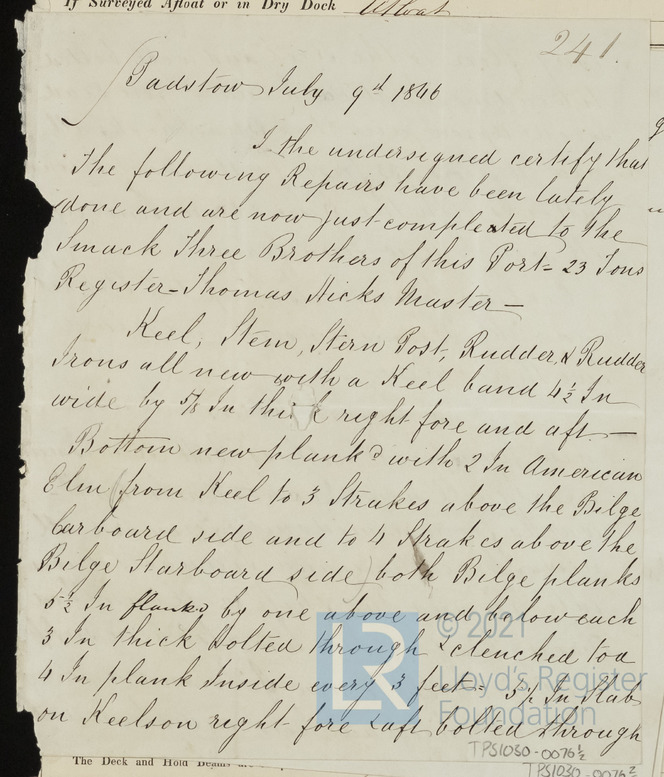 If Surveyed Afloat or in Dry Dock Afloat
241.
Padstow July 9d 1846
I the undersigned certify that
The following Repairs have been lately
done and are now just compleated to the
Smack Three Brothers of this Port = 23 Tons
Register - Thomas Hicks Master -
Keel, Stem, Stern Post, Rudder, & Rudder
Irons all new with a Keel band 4½ In
wide by ⅝ In thick right fore and aft -
Bottom new plankd with 2 In American
Elm (from Keel to 3 Strakes above the Bilge
Larboard side and to 4 Strakes above the
Bilge Starboard side) both Bilge planks
5½ In by one above and below each
3 In thick bolted through & clenched too
4 In plank Inside every 3 feet = In Slab
on Keelson right fore & aft bolted through
LR
© 2021
Lloyd's Register
Foundation
TPS1030-0076½
The Deck and Hold Beams are
TPS1030-0076